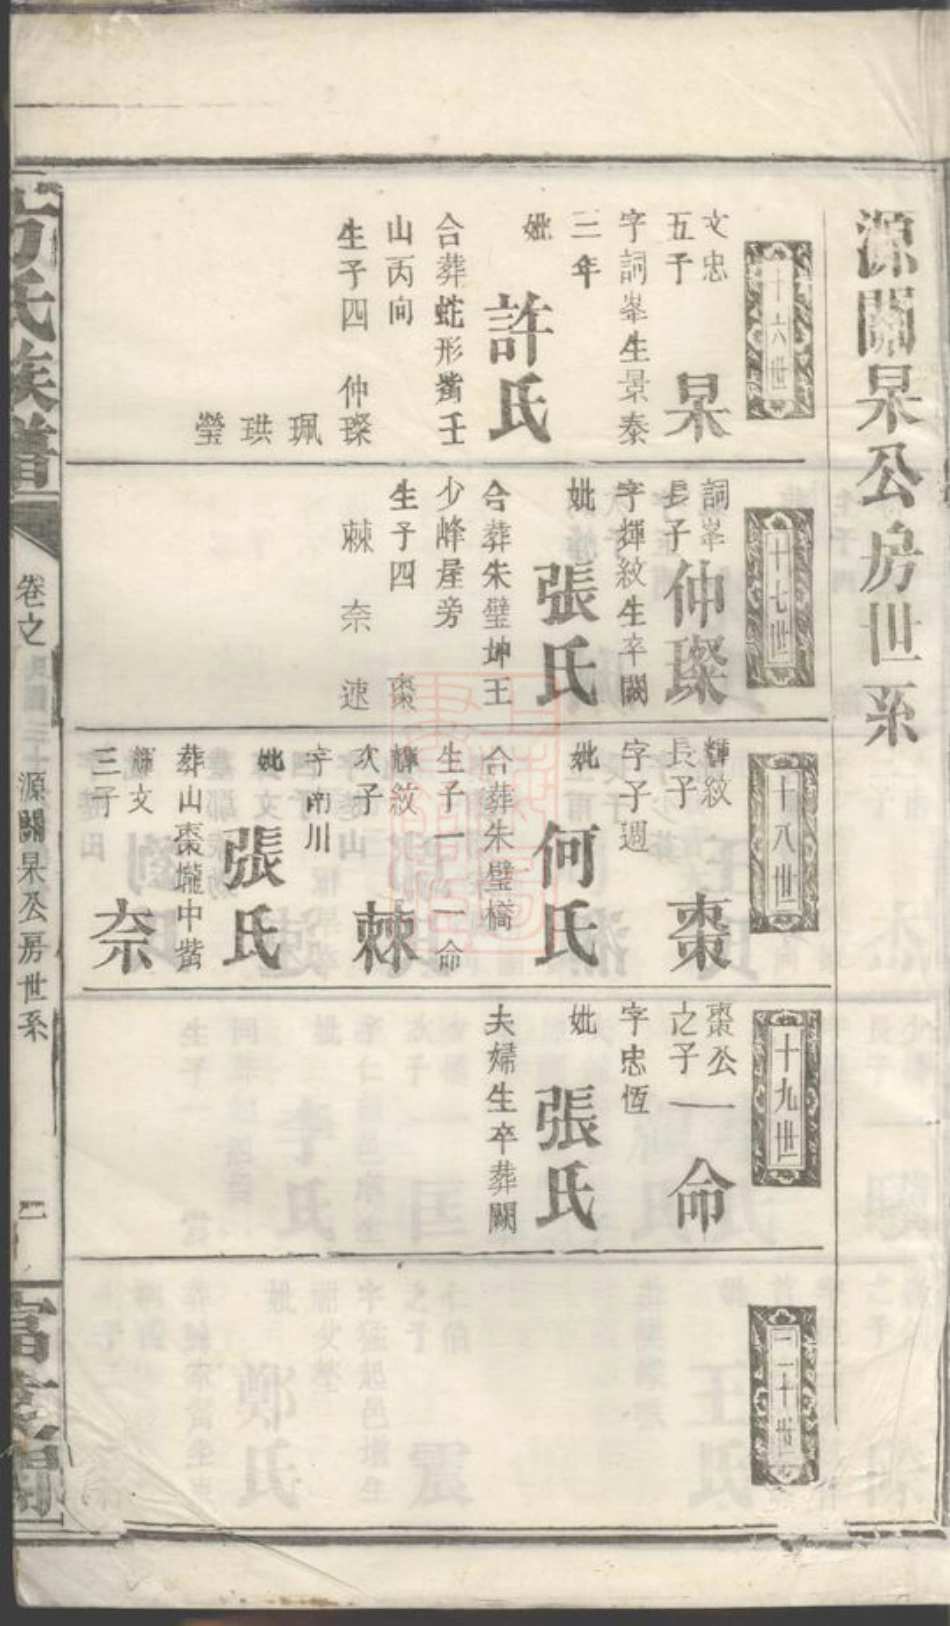 源關杲公房世系
十六世
文忠
五子
杲
字詞峯生景泰
三年
妣
許氏
合葬蛇形嘴壬
山丙向
生子四 仲璨
珮
珙
瑩
十七世
詞峯
長子
仲璨
字輝紋生卒闕
妣
張氏
合葬朱璧坤王
少峰屋旁
生子四 棗
棘 奈 速
十八世
輝紋
長子
棗
字子週
妣
何氏
合葬朱璧橋
生子一 一命
輝紋
次子
棘
字南川
妣
張氏
葬山棗壠中嘴
輝文
三子
奈
十九世
棗公
之子
一命
字忠恆
妣
張氏
夫婦生卒葬闕
二十世
氏族譜
卷之
源關杲公房世系
二